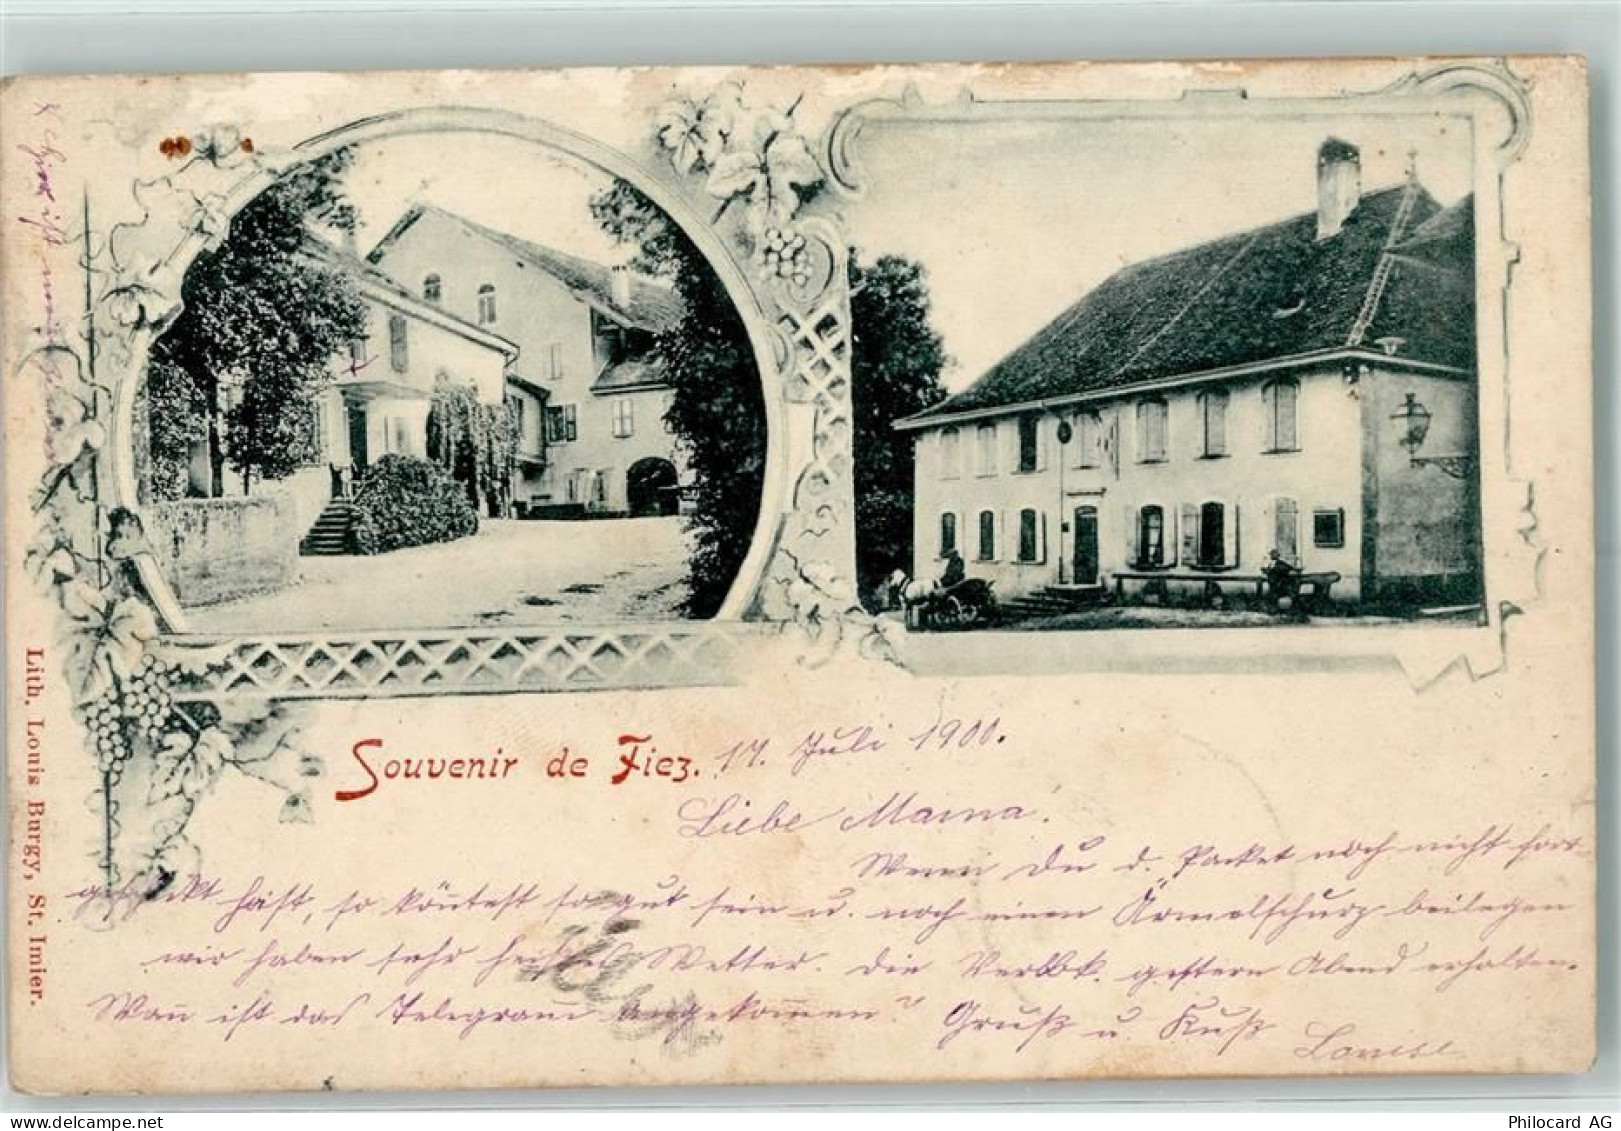 Souvenir de Fiez. 17. Juli 1900.
Liebe Mama.
Wenn Du d. Packet noch nicht fort
geschickt hast, so könntest so gut sein u. noch einen Ärmelschurz beilegen
wir haben sehr heisses Wetter. Die Verbbk. gestern Abend erhalten.
Wann ist das Telegramm angekommen? Gruß u. Kuß
Louise
x hier ist mein
Lith. Louis Burgy, St. Imier.
Philocard AG